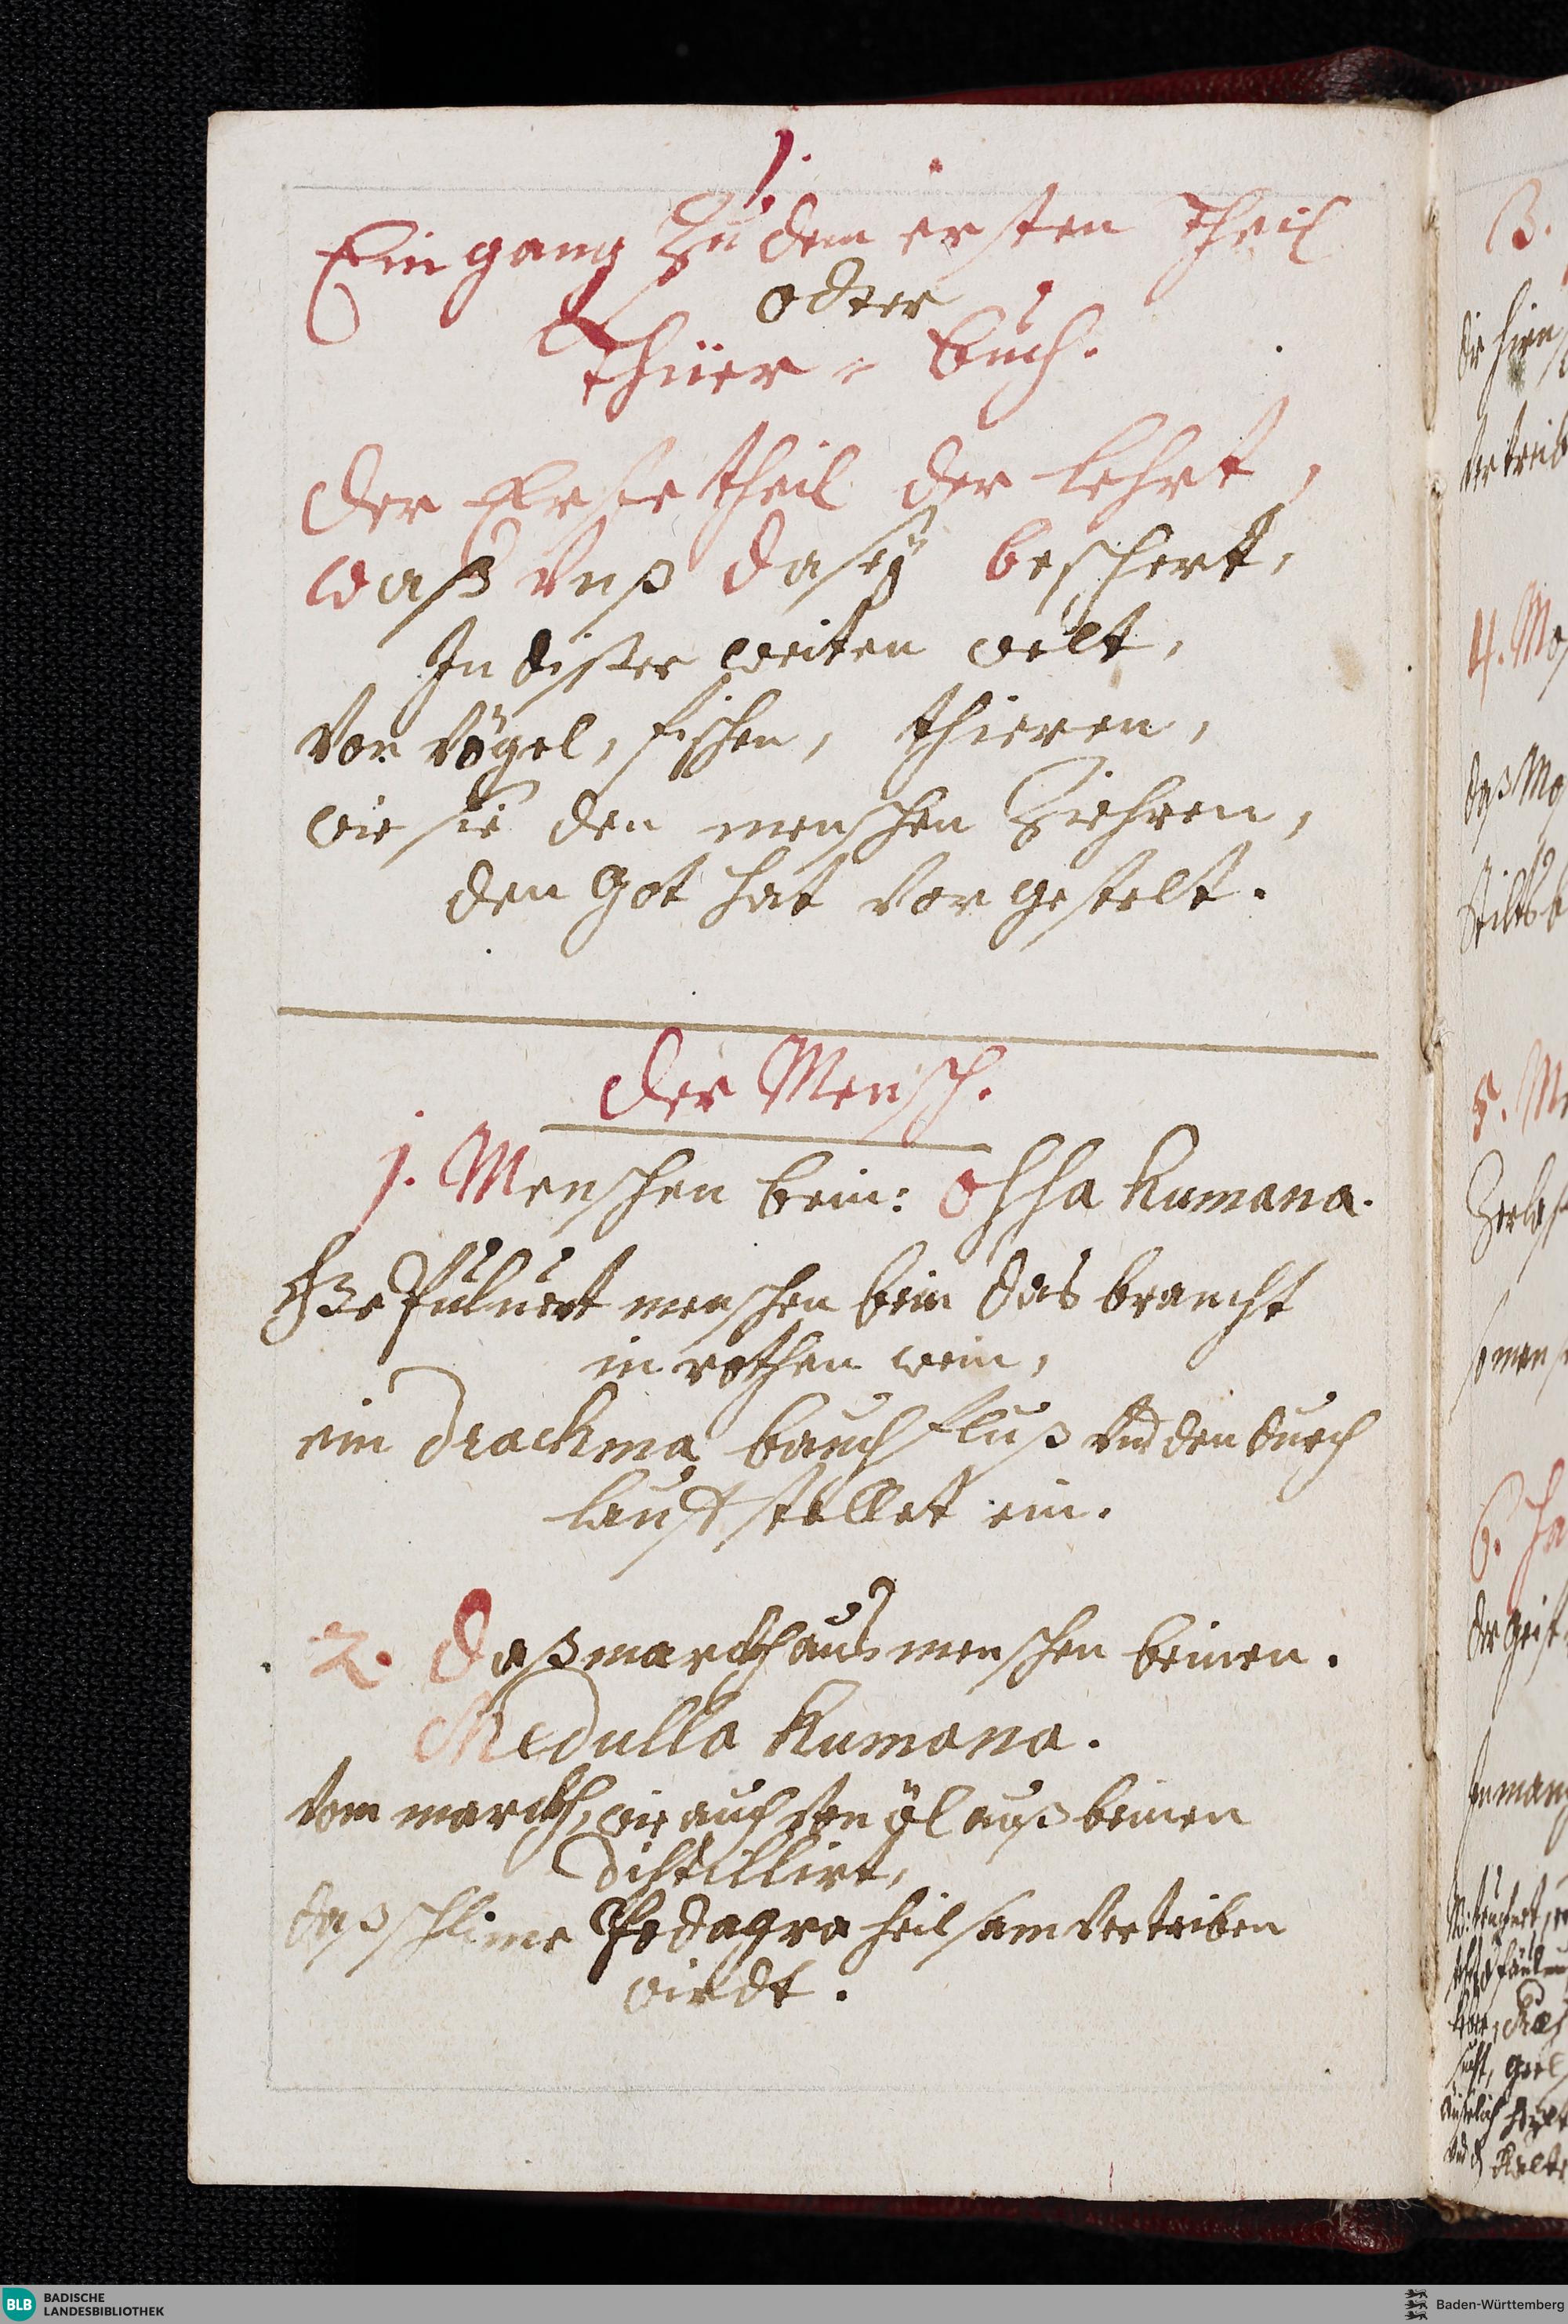 1.
Eingang Zu dem ersten Theil
oder
Thüer = buch.
Der Erste theil der lehrt,
waß vnß da seÿ beschert,
In dißer weiten welt,
Von Vögel, fischen, thieren,
wie sie den menschen Ziehren,
den Got hat vor gestelt.
Der Mensch.
1. Menschen bein: Ossa Humana.
Gepuluert menschen bein das braucht
in rothen wein,
ein Drachma bauch fluß vnd den durch
lauff stellet ein.
2. Daß marckh aus menschen beinen.
Medulla Humana.
Vom marckh, wie auch von öl auß beinen
distillirt,
daß schlime Podagra heilsam vertriben
wirdt.
3.
4. Me
5. Me
6.
BLB BADISCHE
LANDESBIBLIOTHEK
Baden-Württemberg